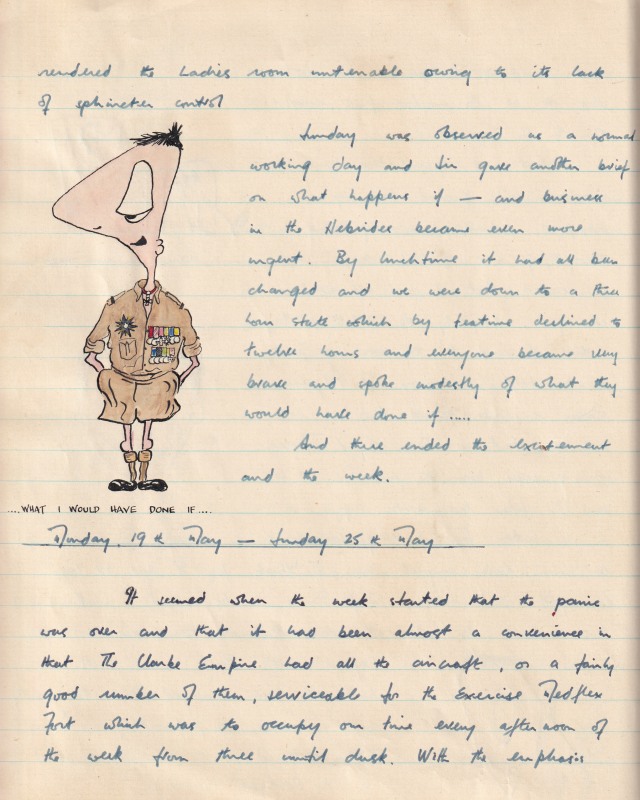 rendered the Ladies room untenable owing to its lack
of sphincter control
Sunday was observed as a normal
working day and Sir gave another brief
on what happens if — and business
in the Hebrides became even more
urgent. By lunchtime it had all been
changed and we were down to a three
hour state which by teatime declined to
twelve hours and everyone became very
brave and spoke modestly of what they
would have done if .....
And there ended the excitement
and the week.
....WHAT I WOULD HAVE DONE IF....
Monday, 19th May — Sunday 25th May
It seemed when the week started that the panic
was over and that it had been almost a convenience in
that The Clarke Empire had all the aircraft, or a fairly
good number of them, serviceable for the Exercise Medflex
Fort which was to occupy our time every afternoon of
the week from three until dusk. With the emphasis